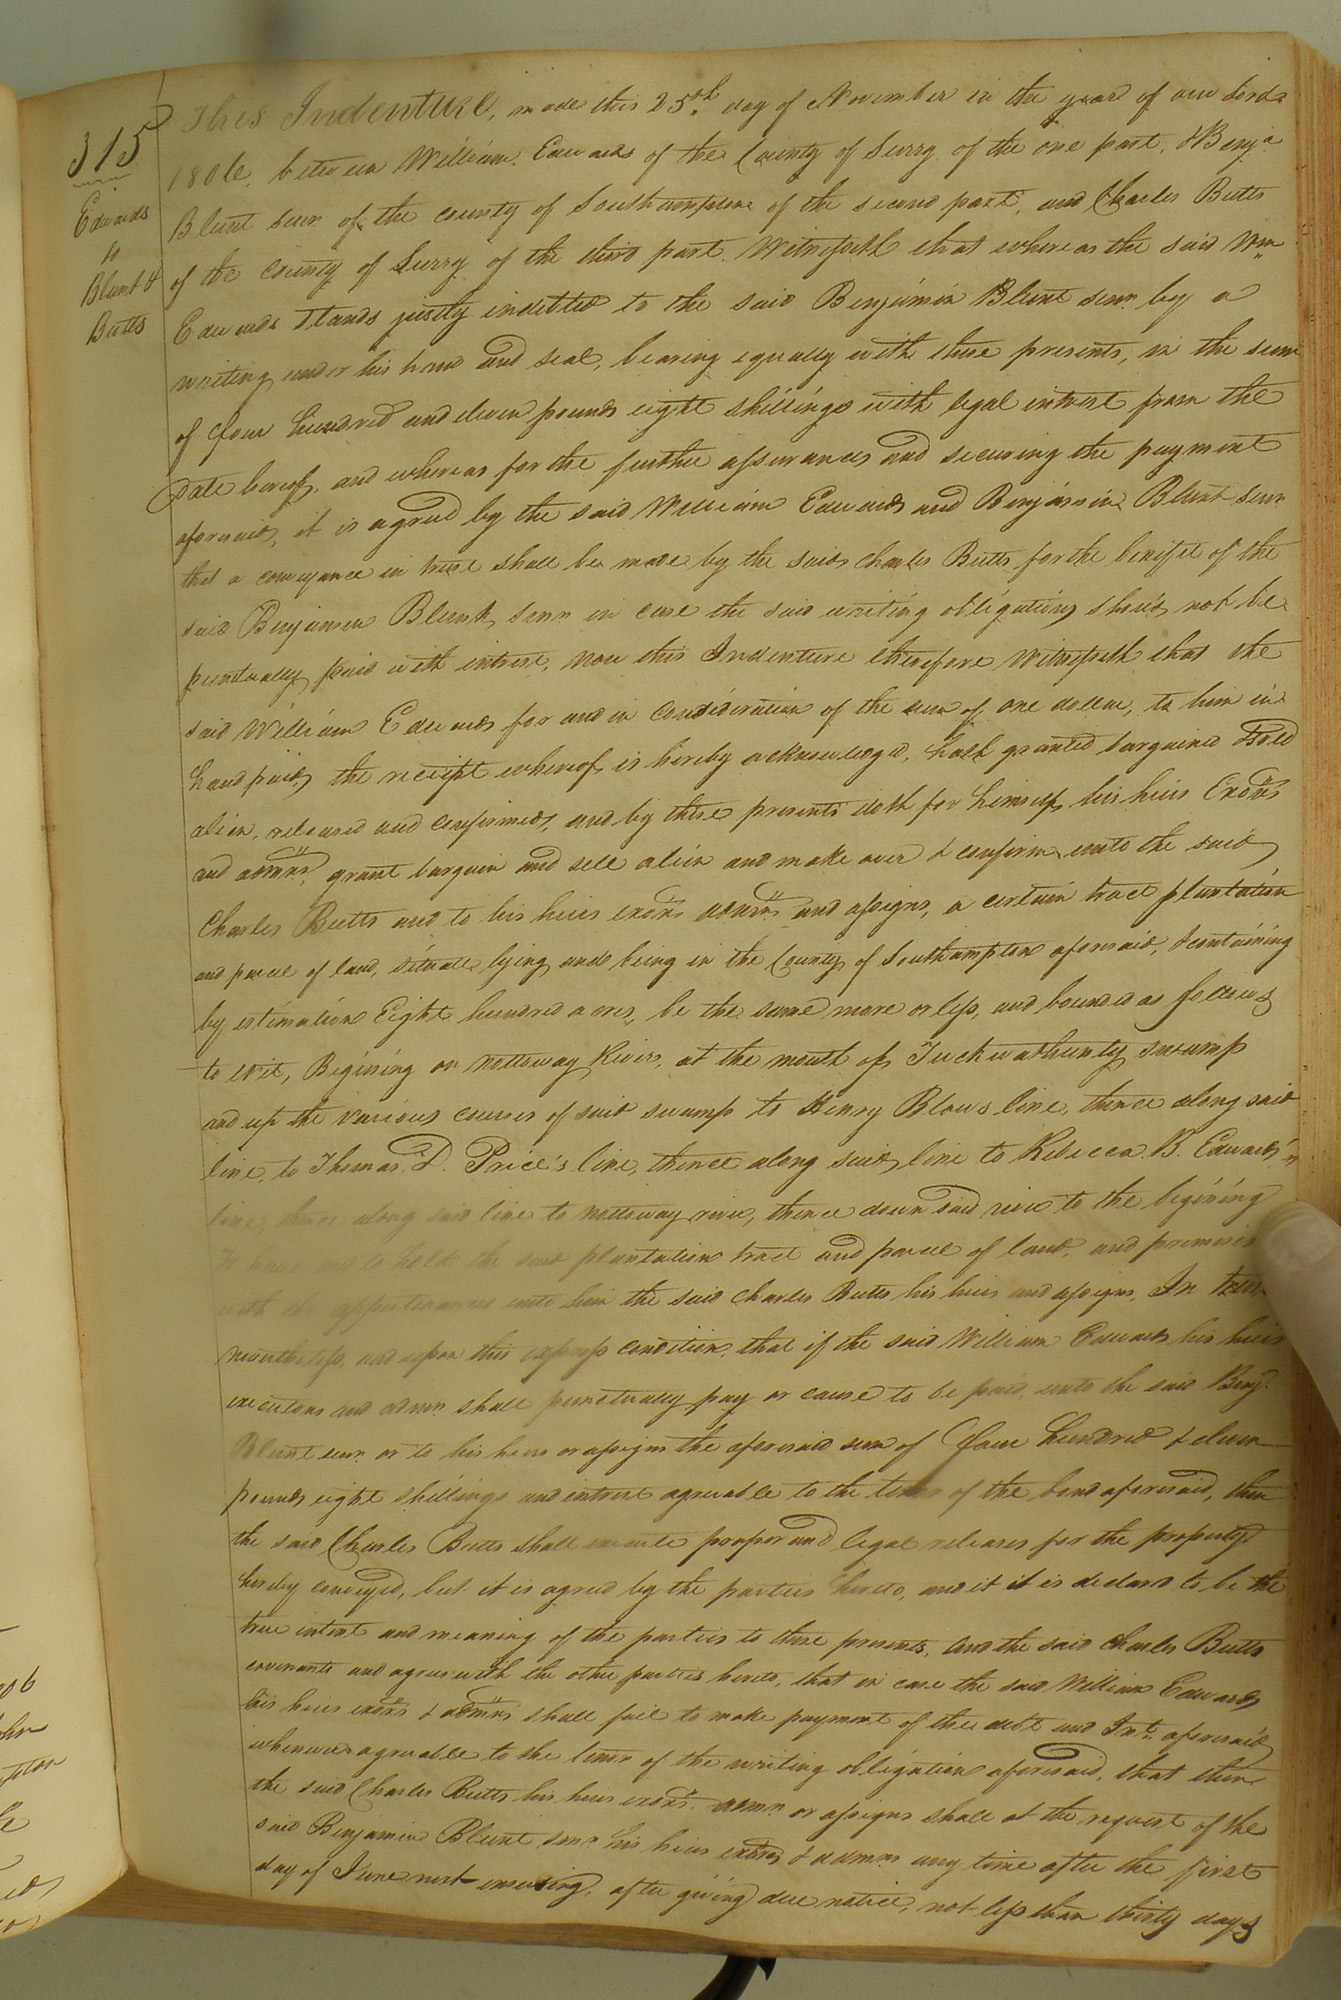 315
Edwards
to
Blunt &
Butts
This Indenture, made this 25th day of November in the year of our Lord
1806, between William Edwards of the County of Surry of the one part, & Benja
Blunt senr of the county of Southampton of the second part, and Charles Butts
of the county of Surry of the third part. Witnesseth that whereas the said Wm
Edwards stands justly indebted to the said Benjamin Blunt senr by a
writing under his hand and seal, bearing equally with these presents, in the sum
of four hundred and eleven pounds eight shillings with legal intrest from the
date hereof, and whereas for the further assurances and securing the payment
aforesaid, it is agreed by the said William Edwards and Benjamin Blunt senr
that a conveyance in trust shall be made by the said Charles Butts for the benifit of the
said Benjamin Blunt, senr in case the said writing obligatory should not be
punctually paid with intrest, now this Indenture therefore Witnesseth that the
said William Edwards for and in consideration of the sum of one dollar, to him in
hand paid, the receipt whereof is hereby acknowledged, hath granted bargained & sold
alien, released and confirmed, and by these presents doth for himself, his heirs Exors
and admrs, grant bargain and sell alien and make over & confirm unto the said
Charles Butts and to his heirs exors admrs and assigns, a certain tract plantation
and parcel of land, situate lying and being in the County of Southampton aforesaid, & containing
by estimation Eight hundred acres, be the same more or less, and bounded as follows
to wit, Begining on Nottoway River, at the mouth of Tuckwathunty swamp
and up the various courses of said swamp to Henry Blows line, thence along said
line, to Thomas D. Price's line, thence along said line to Rebecca B. Edwards's
line, thence along said line to Nottoway river, thence down said river to the begining
To have and to hold the said plantation tract and parcel of land, and premises
with the appurtenances unto him the said Charles Butts his heirs and assigns, In trust
nevertheless, and upon this express condition, that if the said William Edwards his heirs
executors and admrs shall punctually pay or cause to be paid, unto the said Benja
Blunt senr or to his heirs or assigns the aforesaid sum of four hundred & eleven
pounds eight shillings and intrest agreeable to the tenor of the bond aforesaid, then
the said Charles Butts shall execute proper and legal releases for the property
hereby conveyed, but it is agreed by the parties hereto, and it it is declared to be the
true intent and meaning of the parties to these presents, and the said Charles Butts
covenants and agrees with the other parties hereto, that in case the said William Edwards
his heirs exors & admrs shall fail to make payment of the debt and Int. aforesaid
whenever agreeable to the tenor of the writing obligation aforesaid, that then
the said Charles Butts his heirs exors. admrs or assigns shall at the request of the
said Benjamin Blunt senr his heirs exors & admrs any time after the first
day of June next ensuing, after giving due notice, not less than thirty days